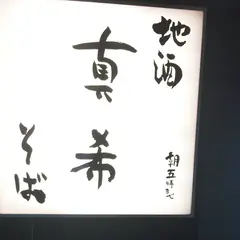 地酒
真希
そば
朝五時まで